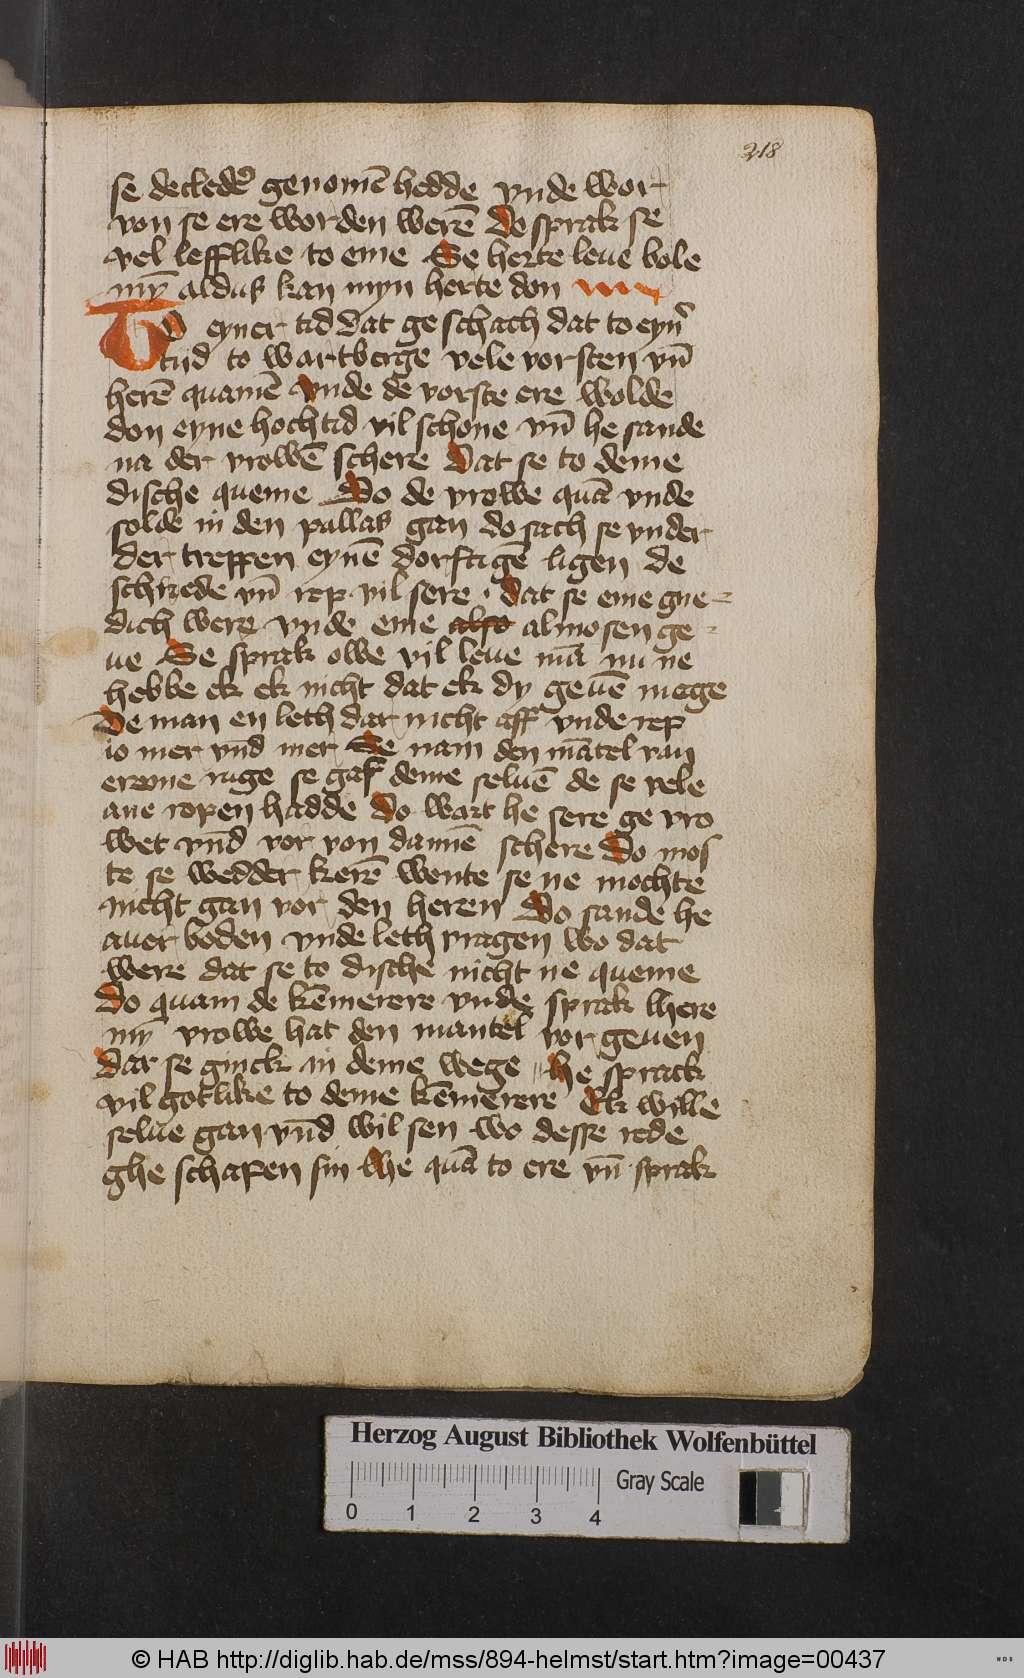 218
se decleder genomē hedde vnde wor
von se ere worden werē Do sprak se
vel lefflike to eme Se herte leue bole
mȳ aldus kan myn herte don
To eyner tid dat geschach dat to eyn͛
tijd to wartberge vele vorsten vn̄
herē quamē vnde de vorste ere wolde
don eyne hochtid vil schone vn̄ he sande
na der vrowē schere Dat se to deme
dische queme Do de vrowe quā vnde
solde in den pallas gan do sach se vnder
der treppen eynē dorftigē ligen de
schriede vn̄ rep vil sere · dat se eme gne-
dich were vnde eme also almosen ge-
ue Se sprak owe vil leue mā nu ne
hebbe ek ek nicht dat ek dy geuē moge
De man en leth dar nicht aff vnde rep
io mer vnd mer Se nam den mātel van
erome ruge se gaf deme seluē de se vele
ane ropen hadde Do wart he sere ge vro
wet vnd vor von dannē schere Do mos
te se wedder kerē wente se ne mochte
nicht gan vor den heren Do sande he
auer boden vnde leth vragen wo dat
were dat se to dische nicht ne queme
Do quam de kēmerere vnde sprak here
mȳ vrowe hat den mantel vorgeuen
dar se ginck in deme wege he sprack
vil gotlike to deme kēmerere Ek wille
selue gan vnd wil sen wo desse rede
ghe schapen sin he quā to ere vn̄ sprak
Herzog August Bibliothek Wolfenbüttel
Gray Scale
0 1 2 3 4
© HAB http://diglib.hab.de/mss/894-helmst/start.htm?image=00437